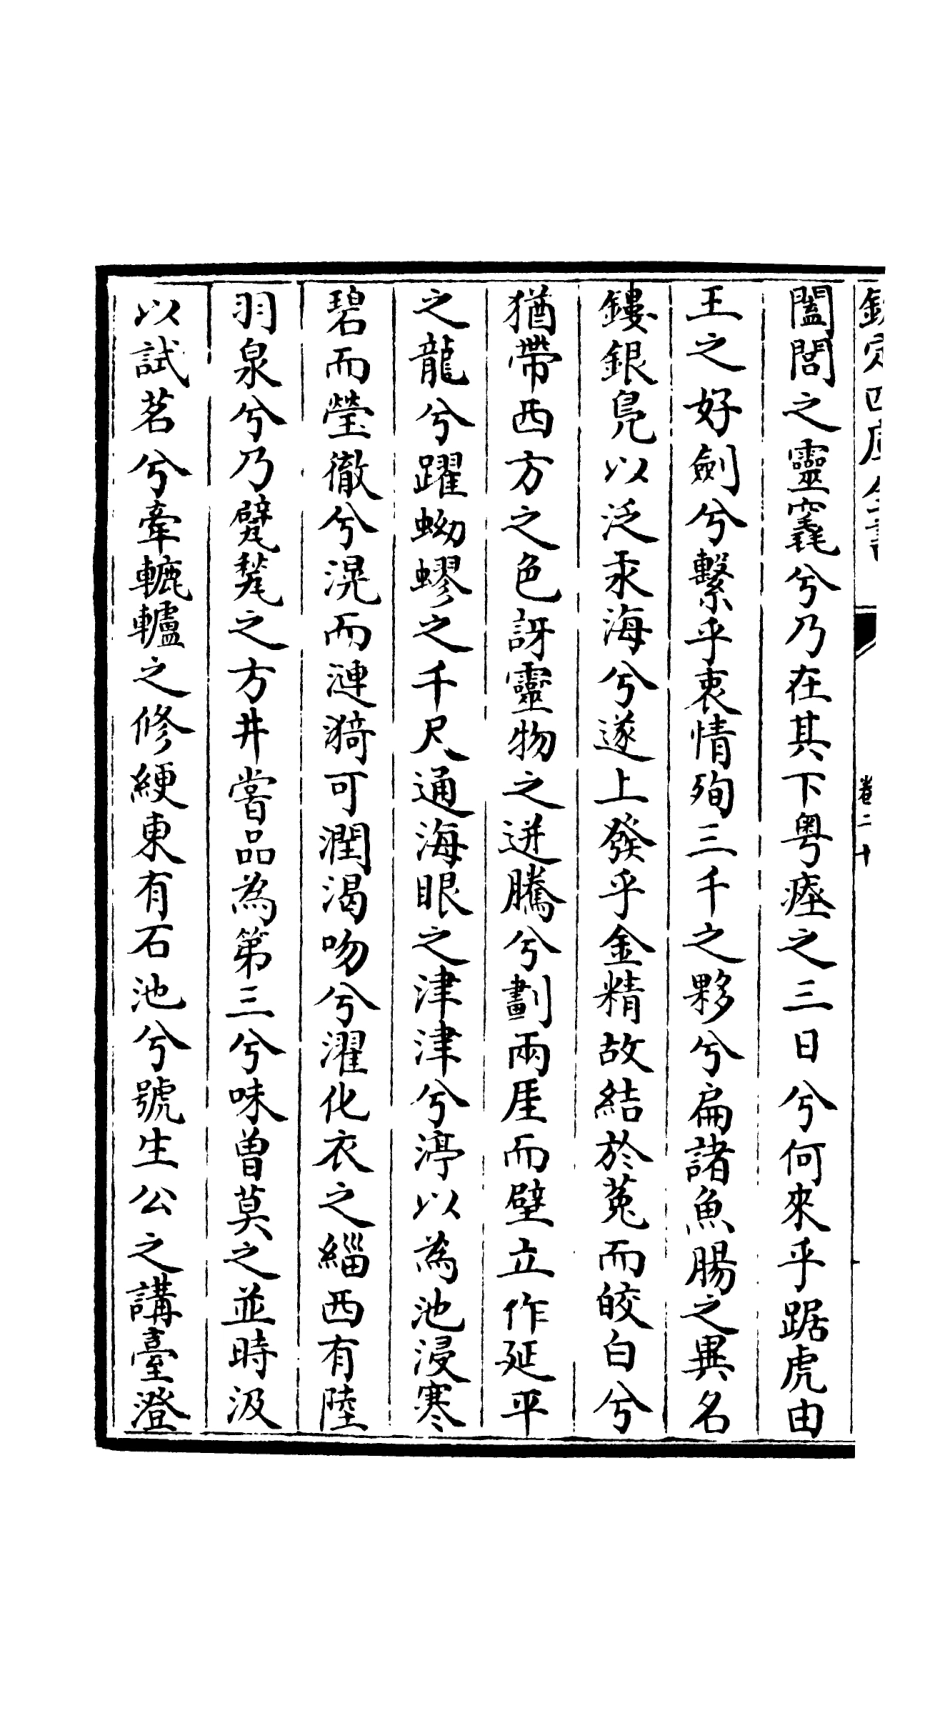 欽定四庫全書
卷二十
闔閭之靈竁兮乃在其下粤瘞之三日兮何來乎踞虎由
王之好劍兮繫乎衷情殉三千之夥兮扁諸魚腸之異名
鏤銀鳬以泛汞海兮遂上發乎金精故結於菟而皎白兮
猶帶西方之色訝靈物之迸騰兮劃兩厓而壁立作延平
之龍兮躍蚴蟉之千尺通海眼之津津兮渟以為池浸寒
碧而瑩徹兮滉而漣漪可潤渴吻兮濯化衣之緇西有陸
羽泉兮乃甓甃之方井嘗品為第三兮味曽莫之並時汲
以試茗兮牽轆轤之修綆東有石池兮號生公之講臺澄